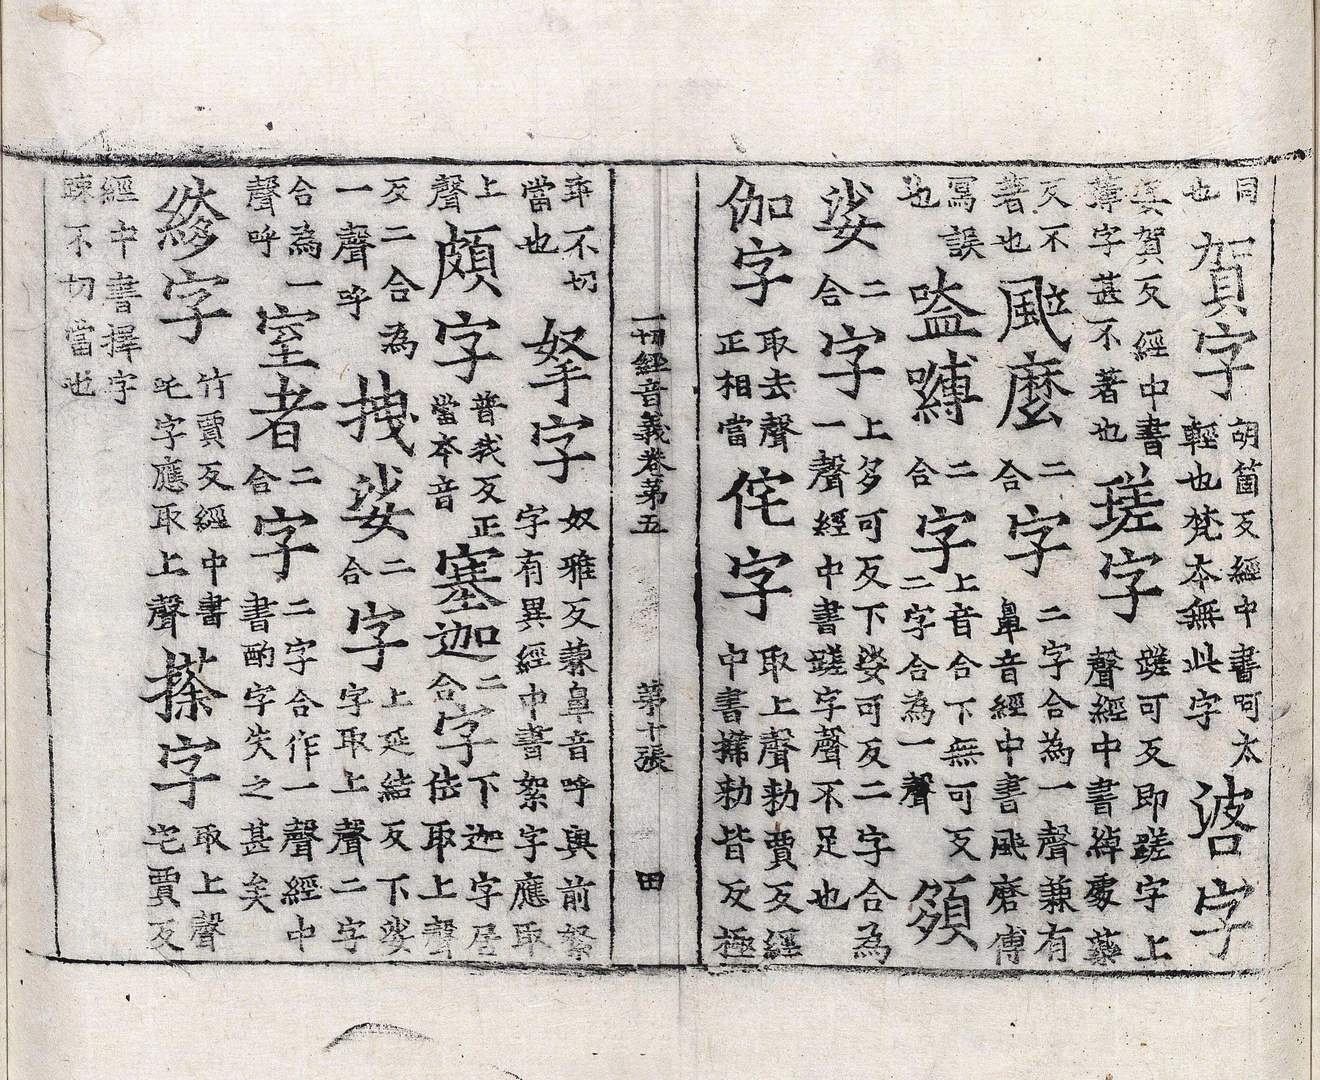 同也賀字胡箇反經中書呵太輕也梵本無此字字
莫賀反經中書薄字甚不著也瑳字蹉可反即蹉字上聲經中書綽處藥
反不著也颰麼二合字二字合為一聲兼有鼻音經中書颰磨傅
寫誤也嗑嚩二合字上音合下無可反二字合為一聲頟
娑二合字上多可反下娑可反二字合為一聲經中書蹉字聲不足也
伽字取去聲正相當侘字取上聲勅賈反經中書勅皆反極
一切經音義卷第五 第十張 田
乖不切當也拏字奴雅反兼鼻音呼與前拏字有異經中書絮字應取
上聲頗字普我反正當本音塞迦二合字下迦字居佉取上聲
反二合為一聲呼拽娑二合字上延結反下娑字取上聲二字
合為一聲呼室者二合字二字合作一聲經中書酌字失之甚矣
字竹賈反經中書吒字應取上聲搽字取上聲宅賈反
經中書擇字疎不切當也